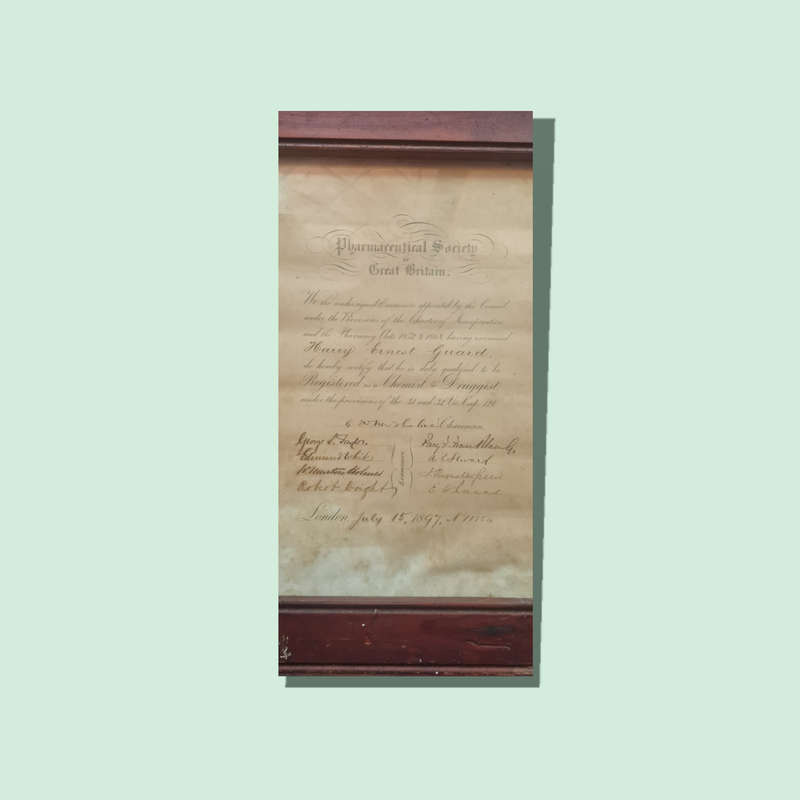 Pharmaceutical Society
of
Great Britain.
We the undersigned Examiners appointed by the Council
under the Provisions of the Charter of Incorporation
and the Pharmacy Acts 1852 & 1868, having examined
Harry Ernest Guard.
do hereby certify that he is duly qualified to be
Registered as a Chemist & Druggist
under the provisions of the 31 and 32 Vic. Cap. 121
Chairman
George S. Taylor.
Edmund White
W. Martin Holmes
Robert Wright
Examiners
London July 15, 1897.